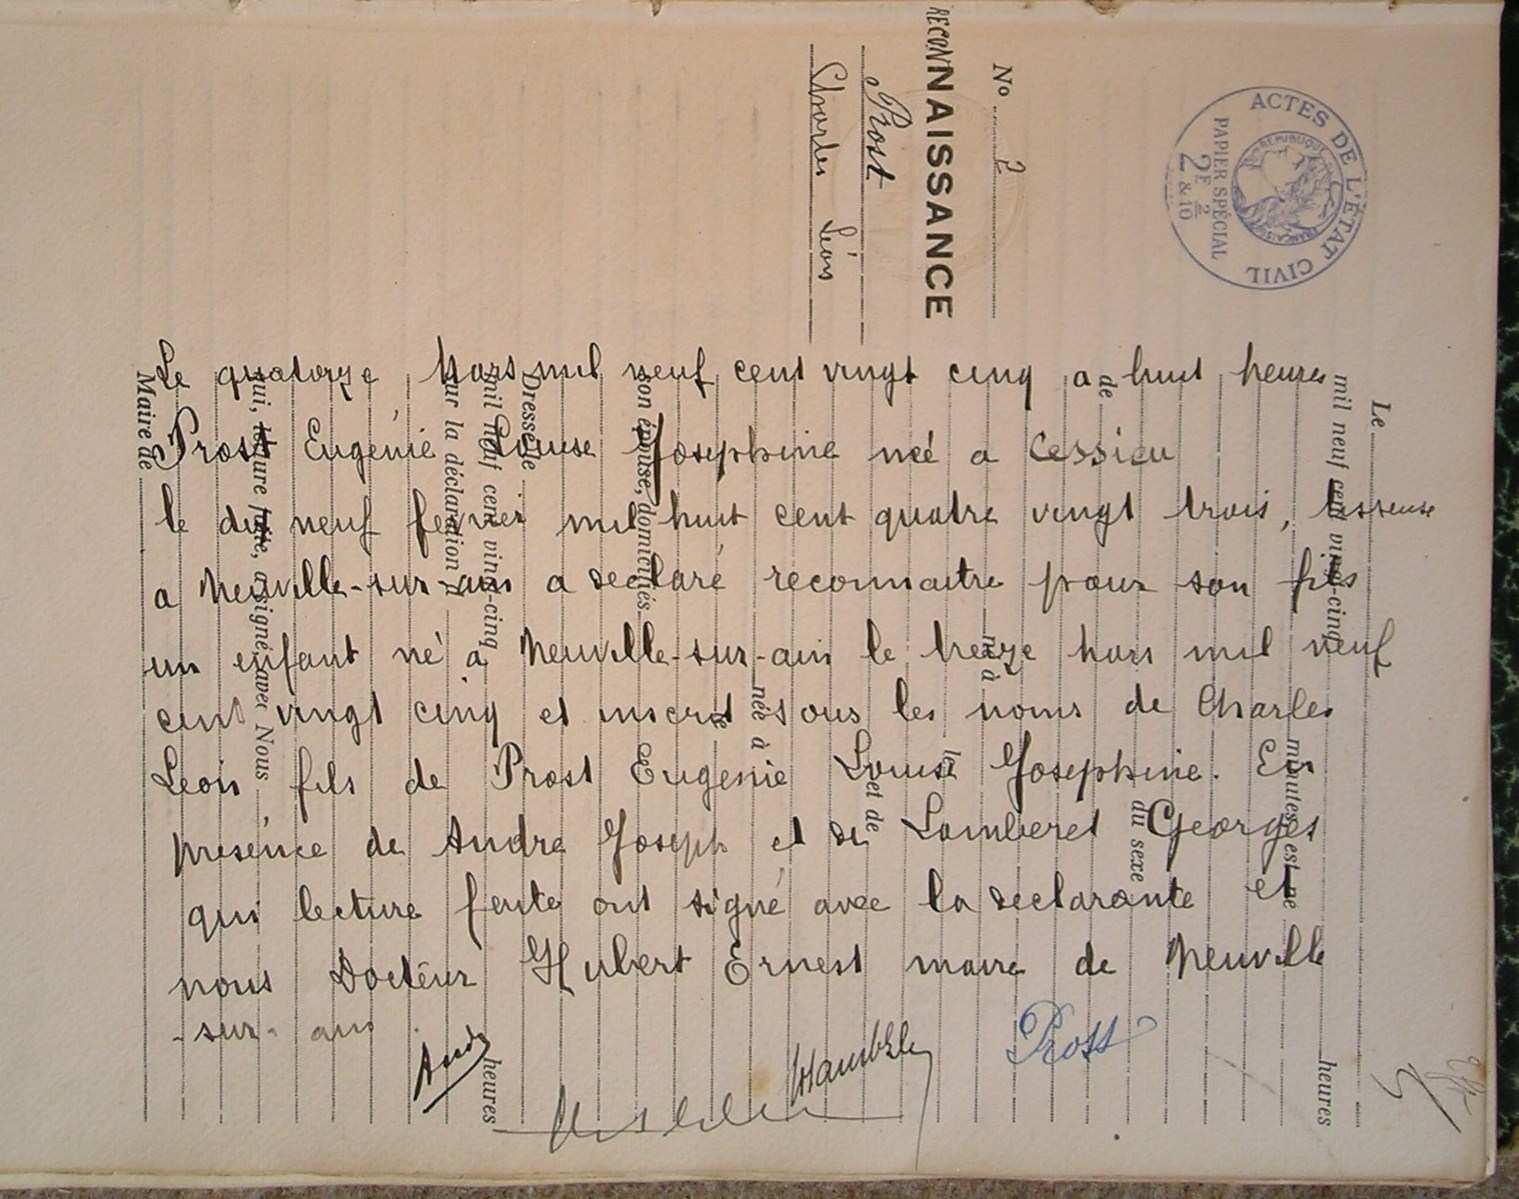 ACTES DE L'ÉTAT CIVIL
RÉPUBLIQUE FRANÇAISE
PAPIER SPÉCIAL
2F 2/10
No 2
RECONNAISSANCE
Prost
Charles Léon
Le quatorze Mars mil neuf cent vingt cinq a huit heures
Prost Eugénie Louise Josephine née a Cessieu
le dix neuf fevrier mil huit cent quatre vingt trois, tisseuse
a Neuville-sur-ain a declaré reconnaitre pour son fils
un enfant né a Neuville-sur-ain le treize mars mil neuf
cent vingt cinq et inscrit sous les noms de Charles
Leon fils de Prost Eugenie Louise Josephine. En
présence de Andre Joseph et de Lamberet Georges
qui lecture faite ont signé avec la declarante et
nous Docteur Hubert Ernest maire de Neuville
-sur-ain
Prost
Le
mil neuf cent vingt-cinq
heures
minutes, est né
du sexe
de
né à
le
et de
née à
le
son épouse, domiciliés
Dressé le
mil neuf cent vingt-cinq
heures
sur la déclaration de
qui, lecture faite, a signé avec Nous
Maire de